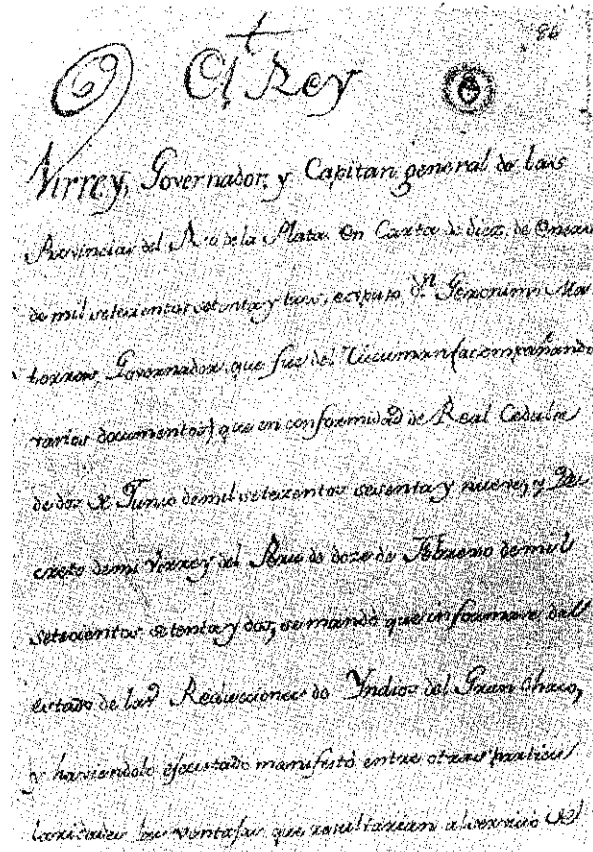 86
El Rey
Virrey, Governador, y Capitan general de las
Provincias del Rio de la Plata. En Carta de diez de Enero
de mil setecientos setenta y tres, expuso Dn. Geronimo Ma
torros, Governador que fue del Tucuman (acompañando
varios documentos) que en conformidad de Real Cedula
de dos de Junio de mil setecientos sesenta y nueve, y De
creto de mi Virrey del Peru de doze de Febrero de mil
setecientos setenta y dos, se mandó que informase del
estado de las Reducciones de Yndios del Gran Chaco,
y haviendolo ejecutado manifestó entre otras particu
laridades las ventajas que resultarian al servicio del